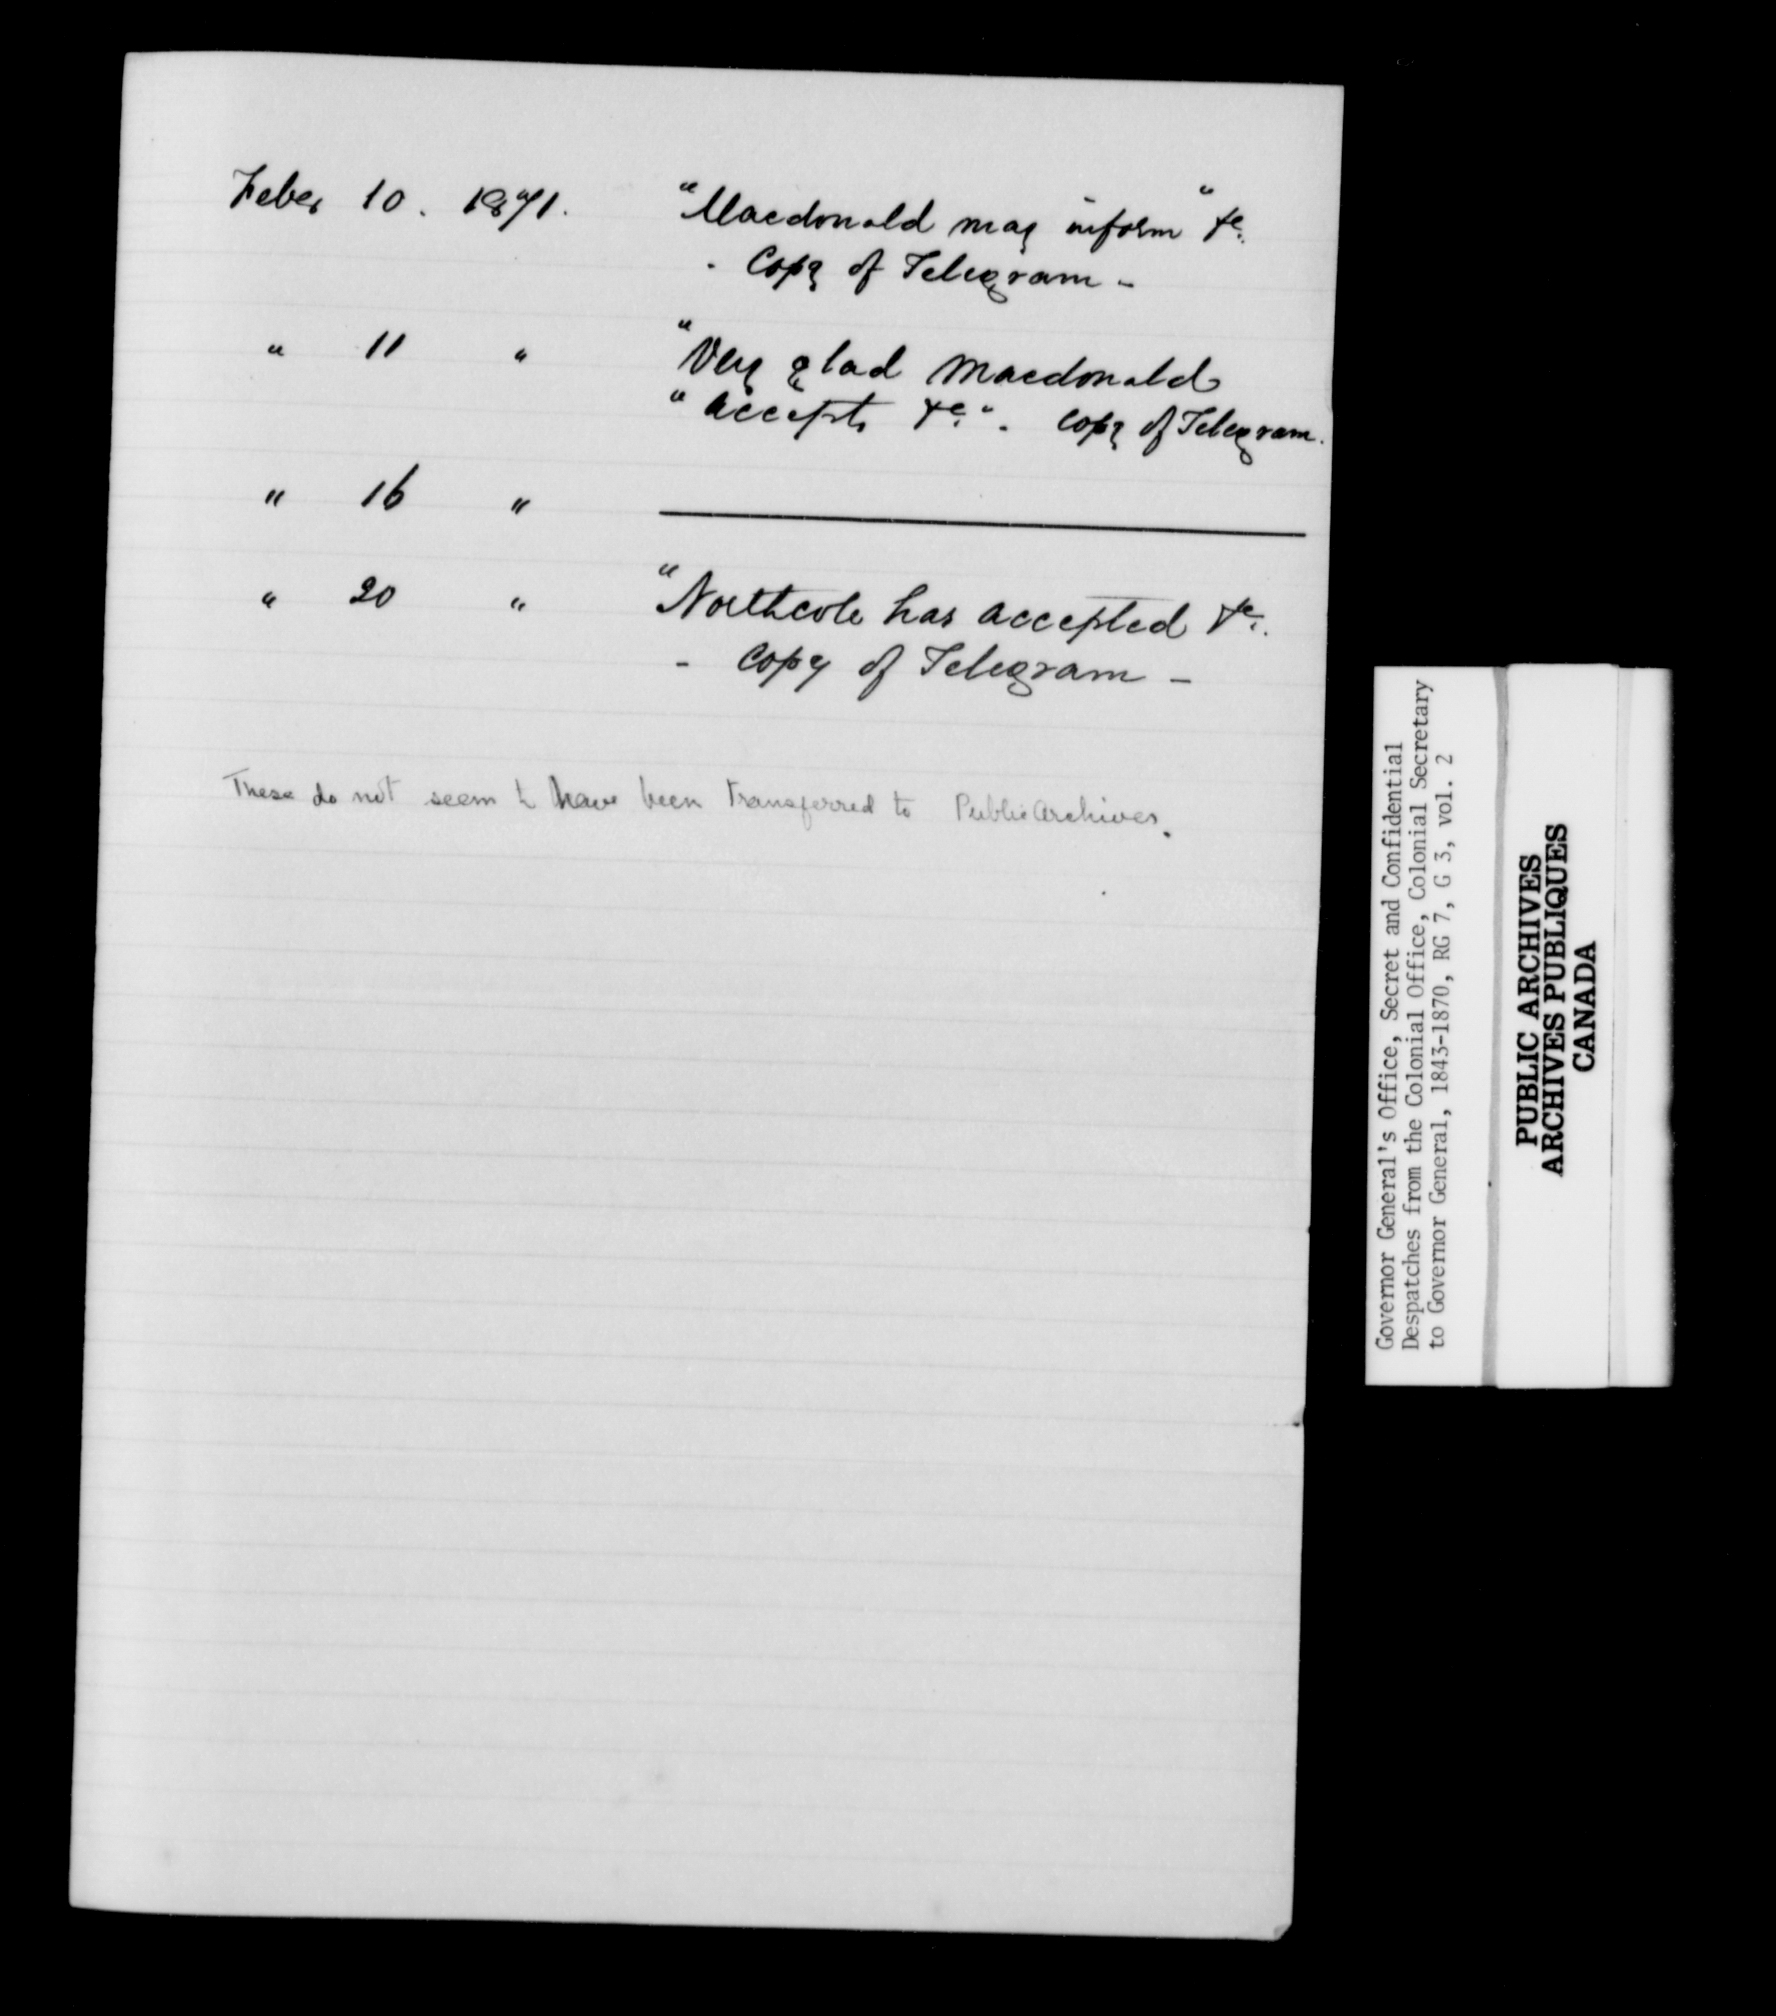 Feber 10. 1871. "Macdonald may inform" &c.
- Copy of Telegram -
" 11 " "Very glad Macdonald
" accepts &c.". Copy of Telegram.
" 16 "
" 20 " "Northcote has accepted &c.
- Copy of Telegram -
These do not seem to have been transferred to Public Archives.
Governor General's Office, Secret and Confidential
Despatches from the Colonial Office, Colonial Secretary
to Governor General, 1843-1870, RG 7, G 3, vol. 2
PUBLIC ARCHIVES
ARCHIVES PUBLIQUES
CANADA